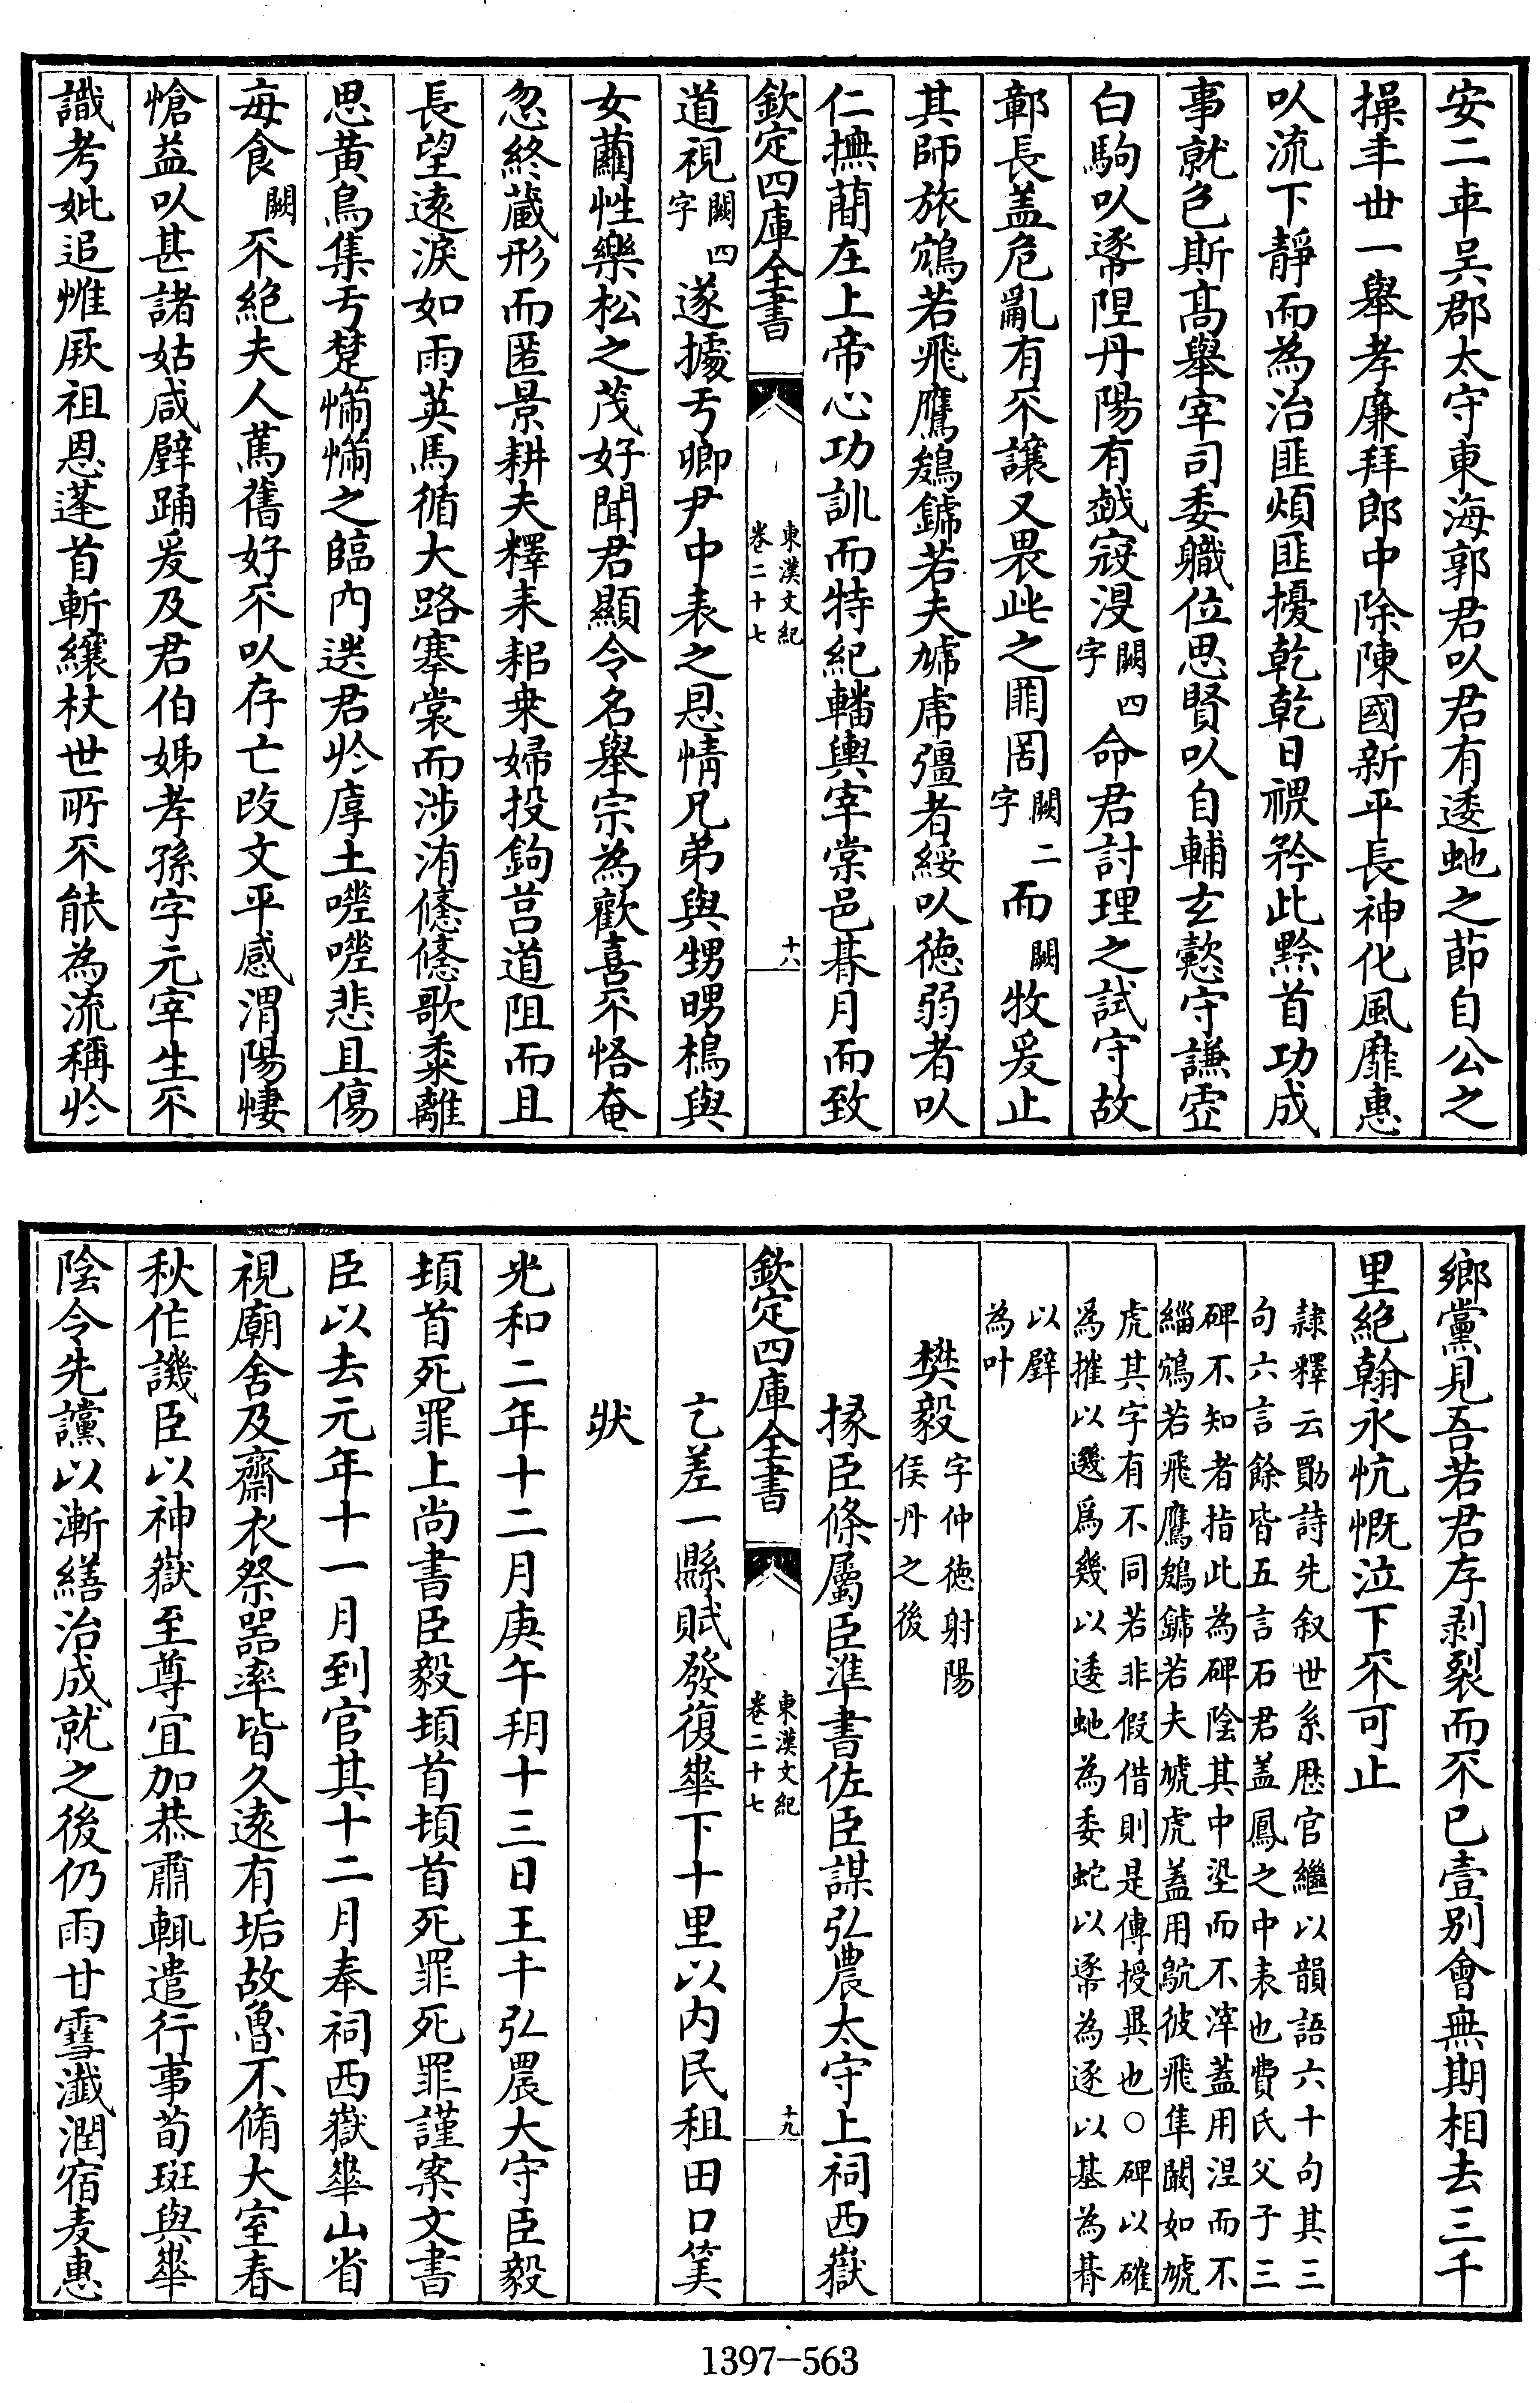 安二𠦑吴郡太守東海郭君以君有逶虵之節自公之
操年丗一舉孝廉拜郎中除陳國新平長神化風靡惠
以流下靜而為治匪煩匪擾乾乾日稷矜此黔首功成
事就色斯髙舉宰司委職位思賢以自輔玄懿守謙虚
白駒以𨓹陧丹陽有越寇没闕四字命君討理之試守故
鄣長盖危亂有不讓又畏此之罔闕二字而闕牧爰止
其師旅鴆若飛鷹鵕鏬若夫虓虎彊者綏以徳弱者以
仁撫蕑在上帝心功訓而特紀轓輿宰棠邑朞月而致
欽定四庫全書
東漢文紀
卷二十七
十八
道視闕四字遂據于卿尹中表之恩情兄弟與甥舅樢與
女蘿性樂松之茂好聞君顯令名舉宗為歡喜不悟奄
忽終藏形而匿景耕夫釋耒耜桒婦投鉤莒道阻而且
長望遠淚如雨英馬循大路搴裳而涉洧悠悠歌黍離
思黃鳥集于楚惴惴之臨內送君於厚土嘤嘤悲且傷
每食闕不絶夫人篤舊好不以存亡改文平感渭陽悽
愴益以甚諸姑咸擗踊爰及君伯姊孝孫字元宰生不
識考妣追惟厥祖恩蓬首斬縗杖世所不能為流稱於
鄉黨見吾若君存剥裂而不已壹别會無期相去三千
里絶翰永忼慨泣下不可止
隷釋云勛詩先叙世系厯官繼以韻語六十句其三
句六言餘皆五言石君盖鳳之中表也費氏父子三
碑不知者指此為碑陰其中埿而不滓盖用涅而不
緇鴆若飛鷹鵕鏬若夫虓虎盖用鴥彼飛隼闞如虓
虎其字有不同若非假借則是傳授異也○碑以確
為摧以㡬為幾以逶虵為委蛇以𨓹為逐以基為朞
以擘
為叶
樊毅字仲徳射陽侯丹之後
掾臣條屬臣準書佐臣謀弘農太守上祠西嶽
乞差一縣賦發復華下十里以内民租田口筭
狀
欽定四庫全書
東漢文紀
卷二十七
十九
光和二年十二月庚午朔十三日壬午弘農大守臣毅
頓首死罪上尚書臣毅頓首頓首死罪死罪謹案文書
臣以去元年十一月到官其十二月奉祠西嶽華山省
視廟舍及齋衣祭器率皆久遠有垢故魯不脩大室春
秋作譏臣以神嶽至尊宜加恭肅輒遣行事荀斑與華
陰令先讜以漸繕治成就之後仍雨甘雪瀸潤宿麦惠
1397-563